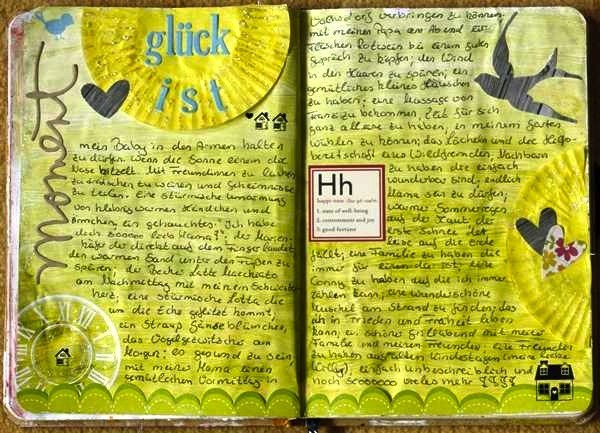 glück
ist
moment
mein Baby in den Armen halten
zu dürfen. wenn die Sonne einem die
Nase kitzelt. Mit Freundinnen zu lachen
zu tratschen zu weinen und Geheimnisse
zu teilen. Eine stürmische Umarmung
von klebrig warmen Händchen und
Ärmchen ein gehauchtes "ich habe
dich sooooo lieb Mama!". der Marien-
käfer der direkt auf dem Finger landet
den warmen Sand unter den Füßen zu
spüren; der Becher Latte Macchiato
am Nachmittag mit meinem Schwester-
herz, eine stürmische Lotta die
um die Ecke gefetzt kommt,
ein Strauß Gänseblümchen,
das Vogelgezwitscher am
Morgen; so gesund zu sein,
mit meiner Mama einen
gemütlichen Vormittag in
verbringen zu können.
mit meinem Papa am Abend ein
Fläschen Rotwein bei einem guten
Gespräch zu köpfen; den Wind
in den Haaren zu spüren; ein
gemütliches kleines Häuschen
zu haben; eine Massage von
Franz zu bekommen, Zeit für sich
ganz alleine zu haben, in meinem Garten
wühlen zu können; das Lächeln und die Hilfs-
bereitschaft eines Wildfremden, Nachbarn
zu haben die einfach
wunderbar sind, endlich
Mama sein zu dürfen;
warme Sommerregen
auf der Haut, der
erste Schnee der
leise auf die Erde
fällt; eine Familie zu haben die
immer für einen da ist; eine
Conny zu haben auf die ich immer
zählen kann; eine wunderschöne
Muschel am Strand zu finden; das
ich in Frieden und Freiheit leben
kann; ein schöner Grillabend mit meiner
Familie und meinen Freunden; eine Freundin
zu haben aus alten Kindestagen (meine
einfach unbeschreiblich und
noch Soooooo vieles mehr
Hh
happi·ness
1: state of well-being
2: contentment and joy
3: good fortune